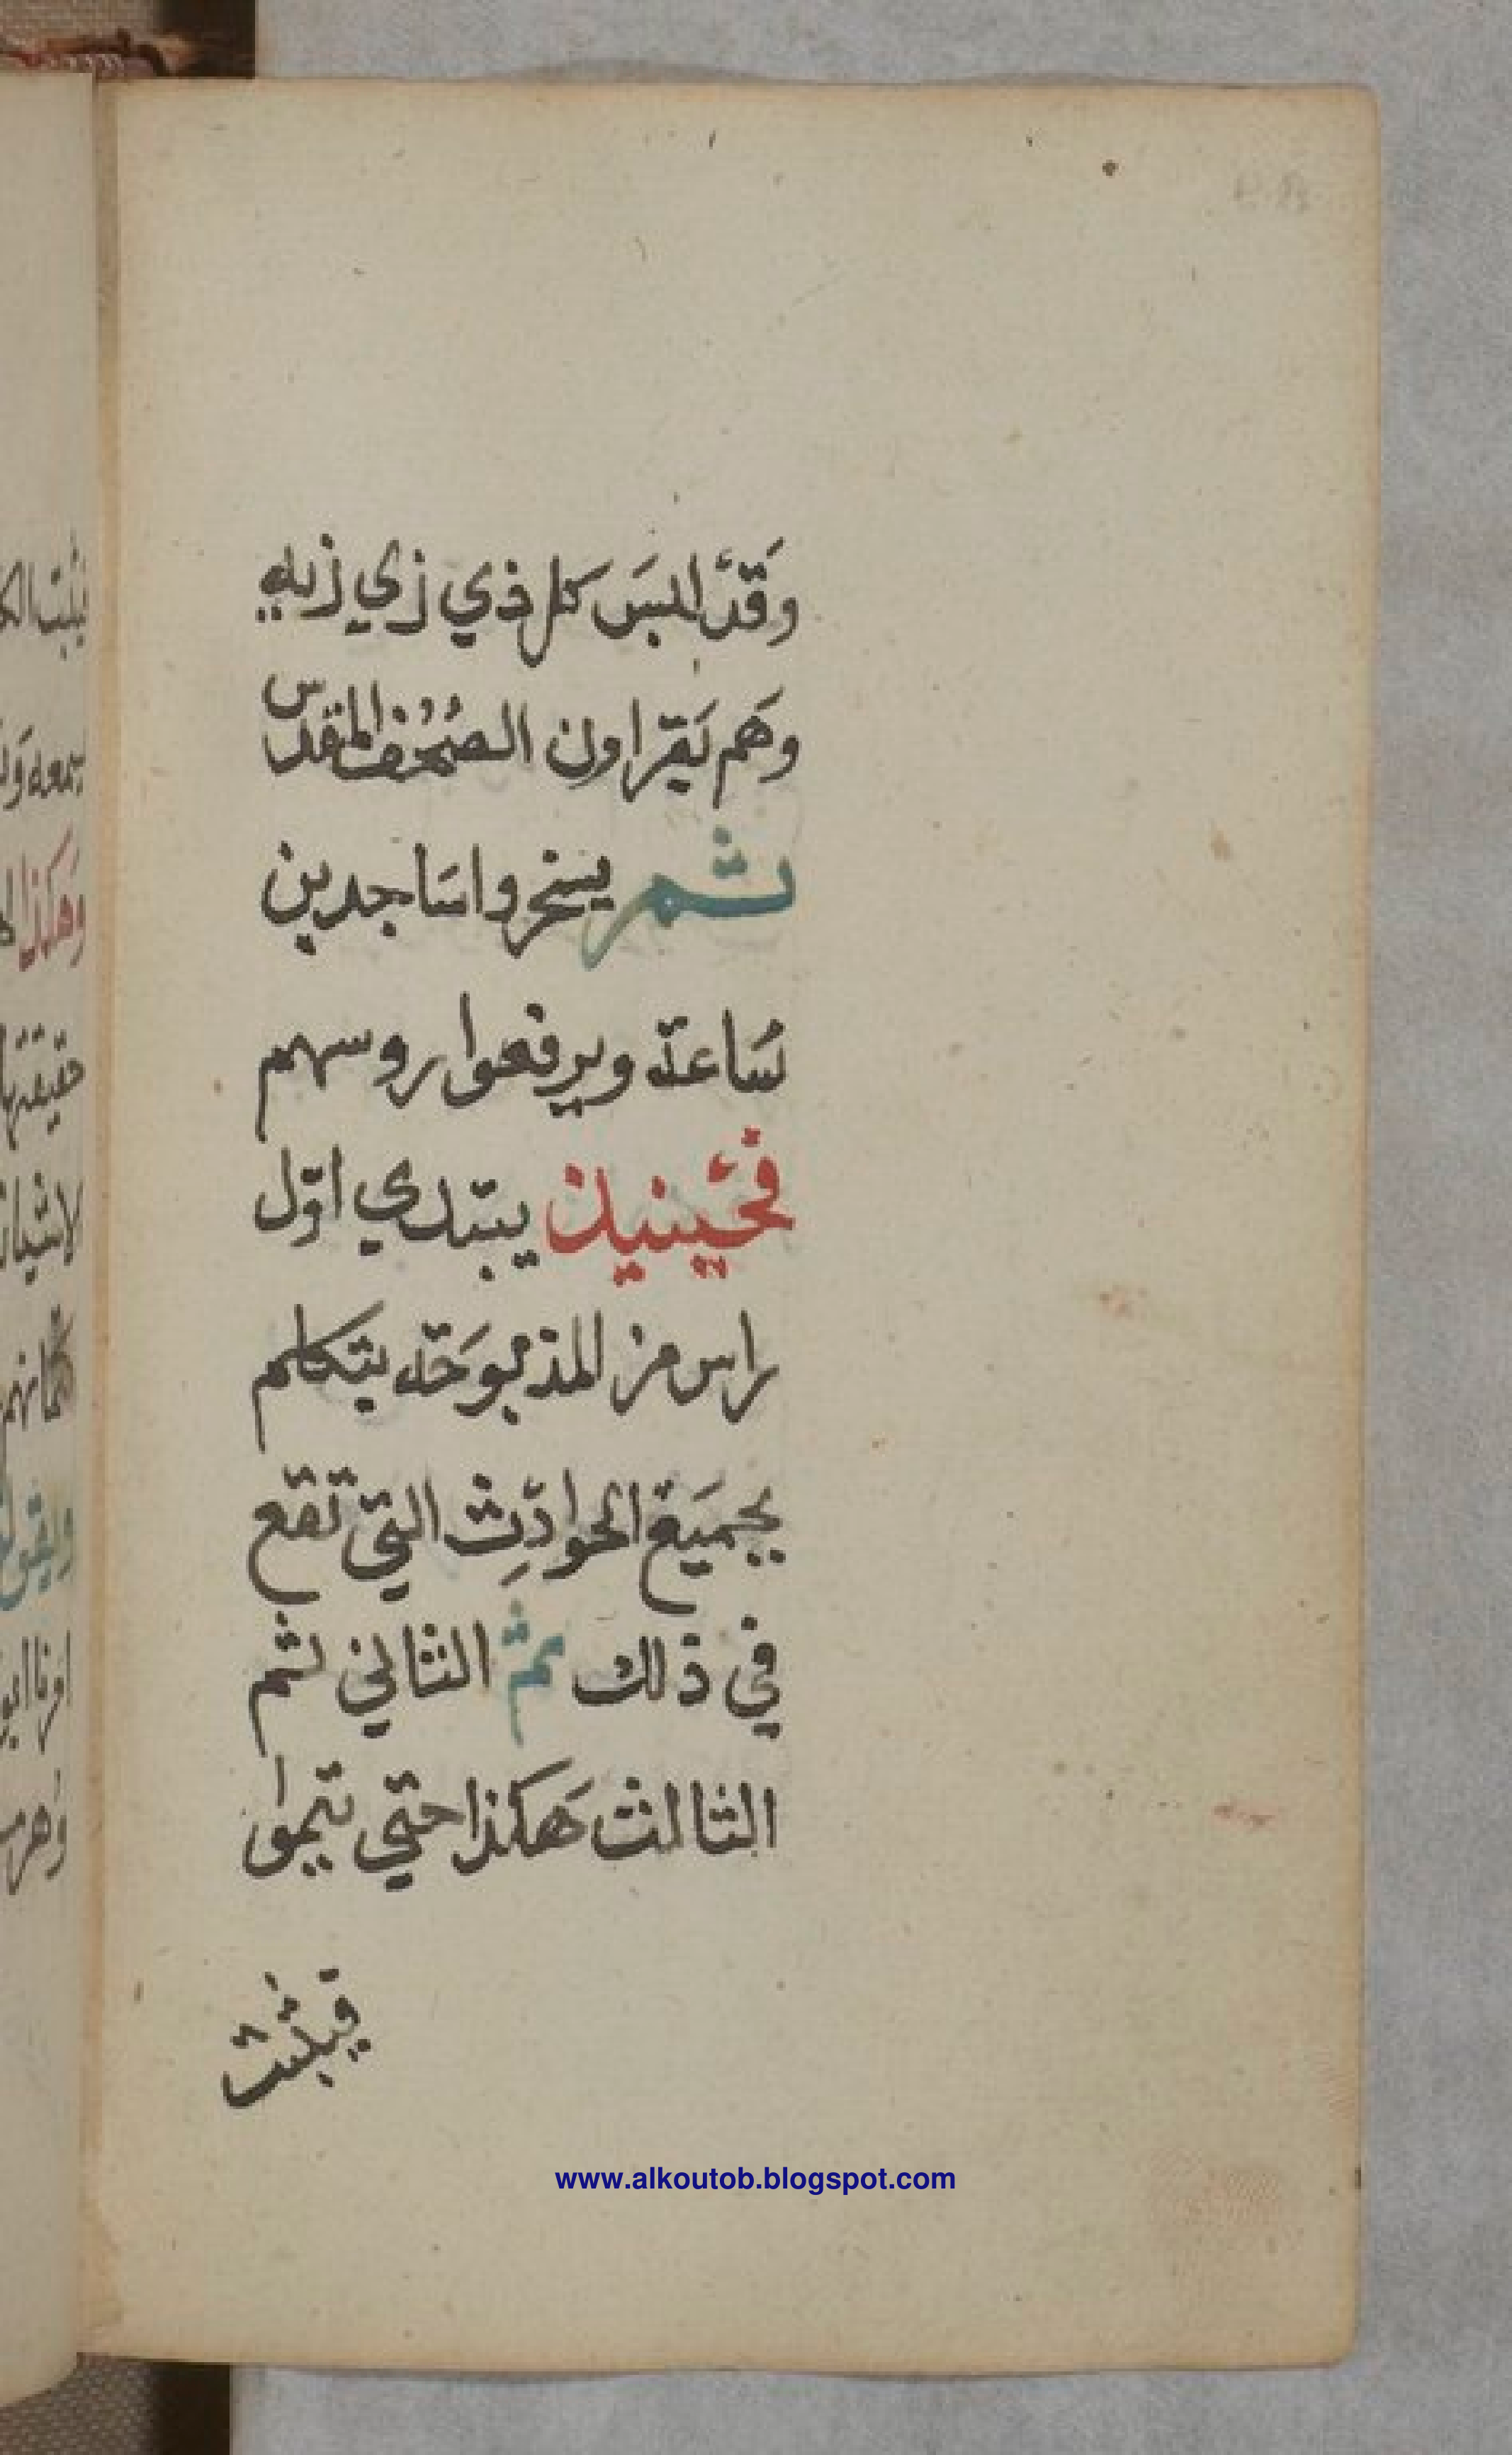 وَقَدّ البَس كل ذي زي زيه
وهَم يَقرَاون الصُحُف المقدس
ثم يخروا سَاجدين
سَاعة ويرفعوا روسهم
فحَّينيذ يبتدي اوّل
راس من المذبوحَة يتكلم
بجميَع الحوادِث التي تقع
في ذلك ثم الثاني ثم
الثالث هَكذا حتي يتموا
فيثبت
www.alkoutob.blogspot.com